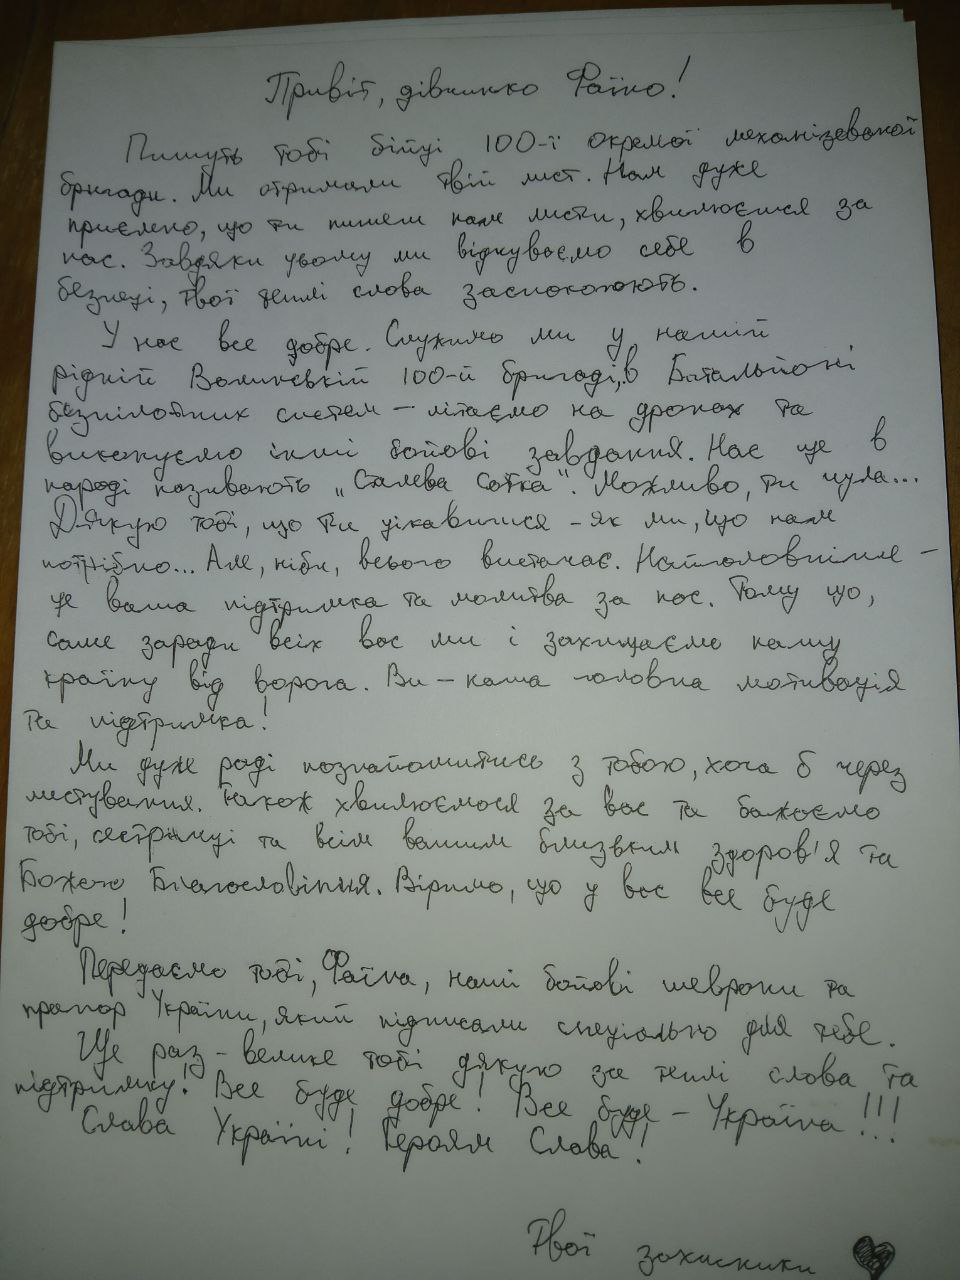 Привіт, дівчинко Фаїно!
Пишуть тобі бійці 100-ї окремої механізованої
бригади. Ми отримали твій лист. Нам дуже
приємно, що ти пишеш нам листи, хвилюєшся за
нас. Завдяки цьому ми відчуваємо себе в
безпеці, твої теплі слова заспокоюють.
У нас все добре. Служимо ми у нашій
рідній Волинській 100-й бригаді, в Батальйоні
безпілотних систем – літаємо на дронах та
виконуємо інші бойові завдання. Нас ще в
народі називають „Сталева Сотка". Можливо, ти чула...
Дякую тобі, що ти цікавишся – як ми, що нам
потрібно... Але, ніби, всього вистачає. Найголовніше –
це ваша підтримка та молитва за нас. Тому що,
саме заради всіх вас ми і захищаємо нашу
країну від ворога. Ви – наша головна мотивація
та підтримка!
Ми дуже раді познайомитись з тобою, хоча б через
листування. Також хвилюємося за вас та бажаємо
тобі, сестричці та всім вашим близьким здоров'я та
Божого Благословіння. Віримо, що у вас все буде
добре!
Передаємо тобі, Фаїна, наші бойові шеврони та
прапор України, який підписали спеціально для тебе.
Ще раз – велике тобі дякую за теплі слова та
підтримку! Все буде добре! Все буде – Україна!!!
Слава Україні! Героям Слава!
Твої захисники